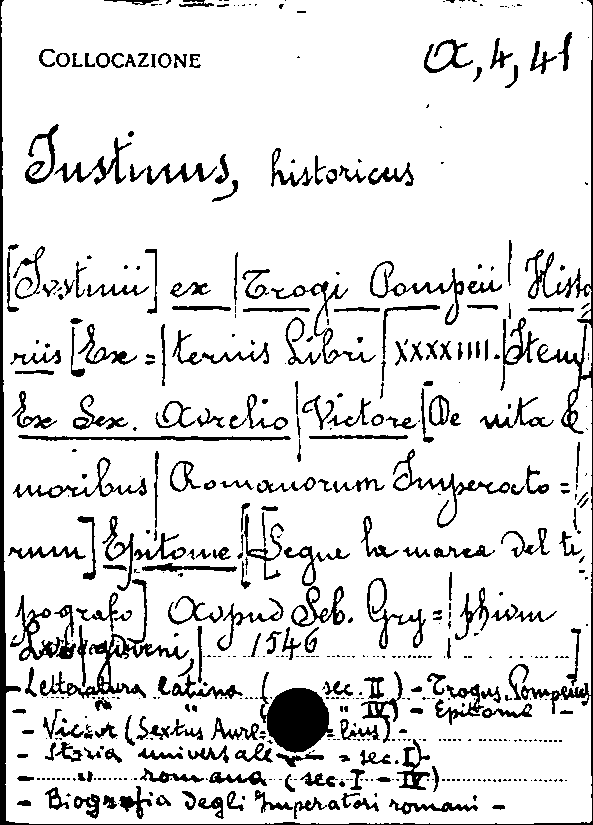 COLLOCAZIONE α, 4, 41
Iustinus, historicus
[Ivstinii] ex | Trogi Pompeii | Histo
riis [Ex = | ternis Libri | XXXXIIII. | Item]
Ex Sex. Avrelio | Victore [De vita &
moribus | Romanorum Imperato = |
rum] Epitome. | [Segue la marca del ti
pografo] Avpud Seb. Gry = | phivm
1546 ]
- Letteratura latina ( sec. II ) - Trogus, Pompeius
- " " ( " IV ) - Epitome | -
- Victor (Sextus Aure= =lius) -
- Storia universale = sec. I) -
- " romana ( sec. I - IV )
- Biografia degli Imperatori romani -